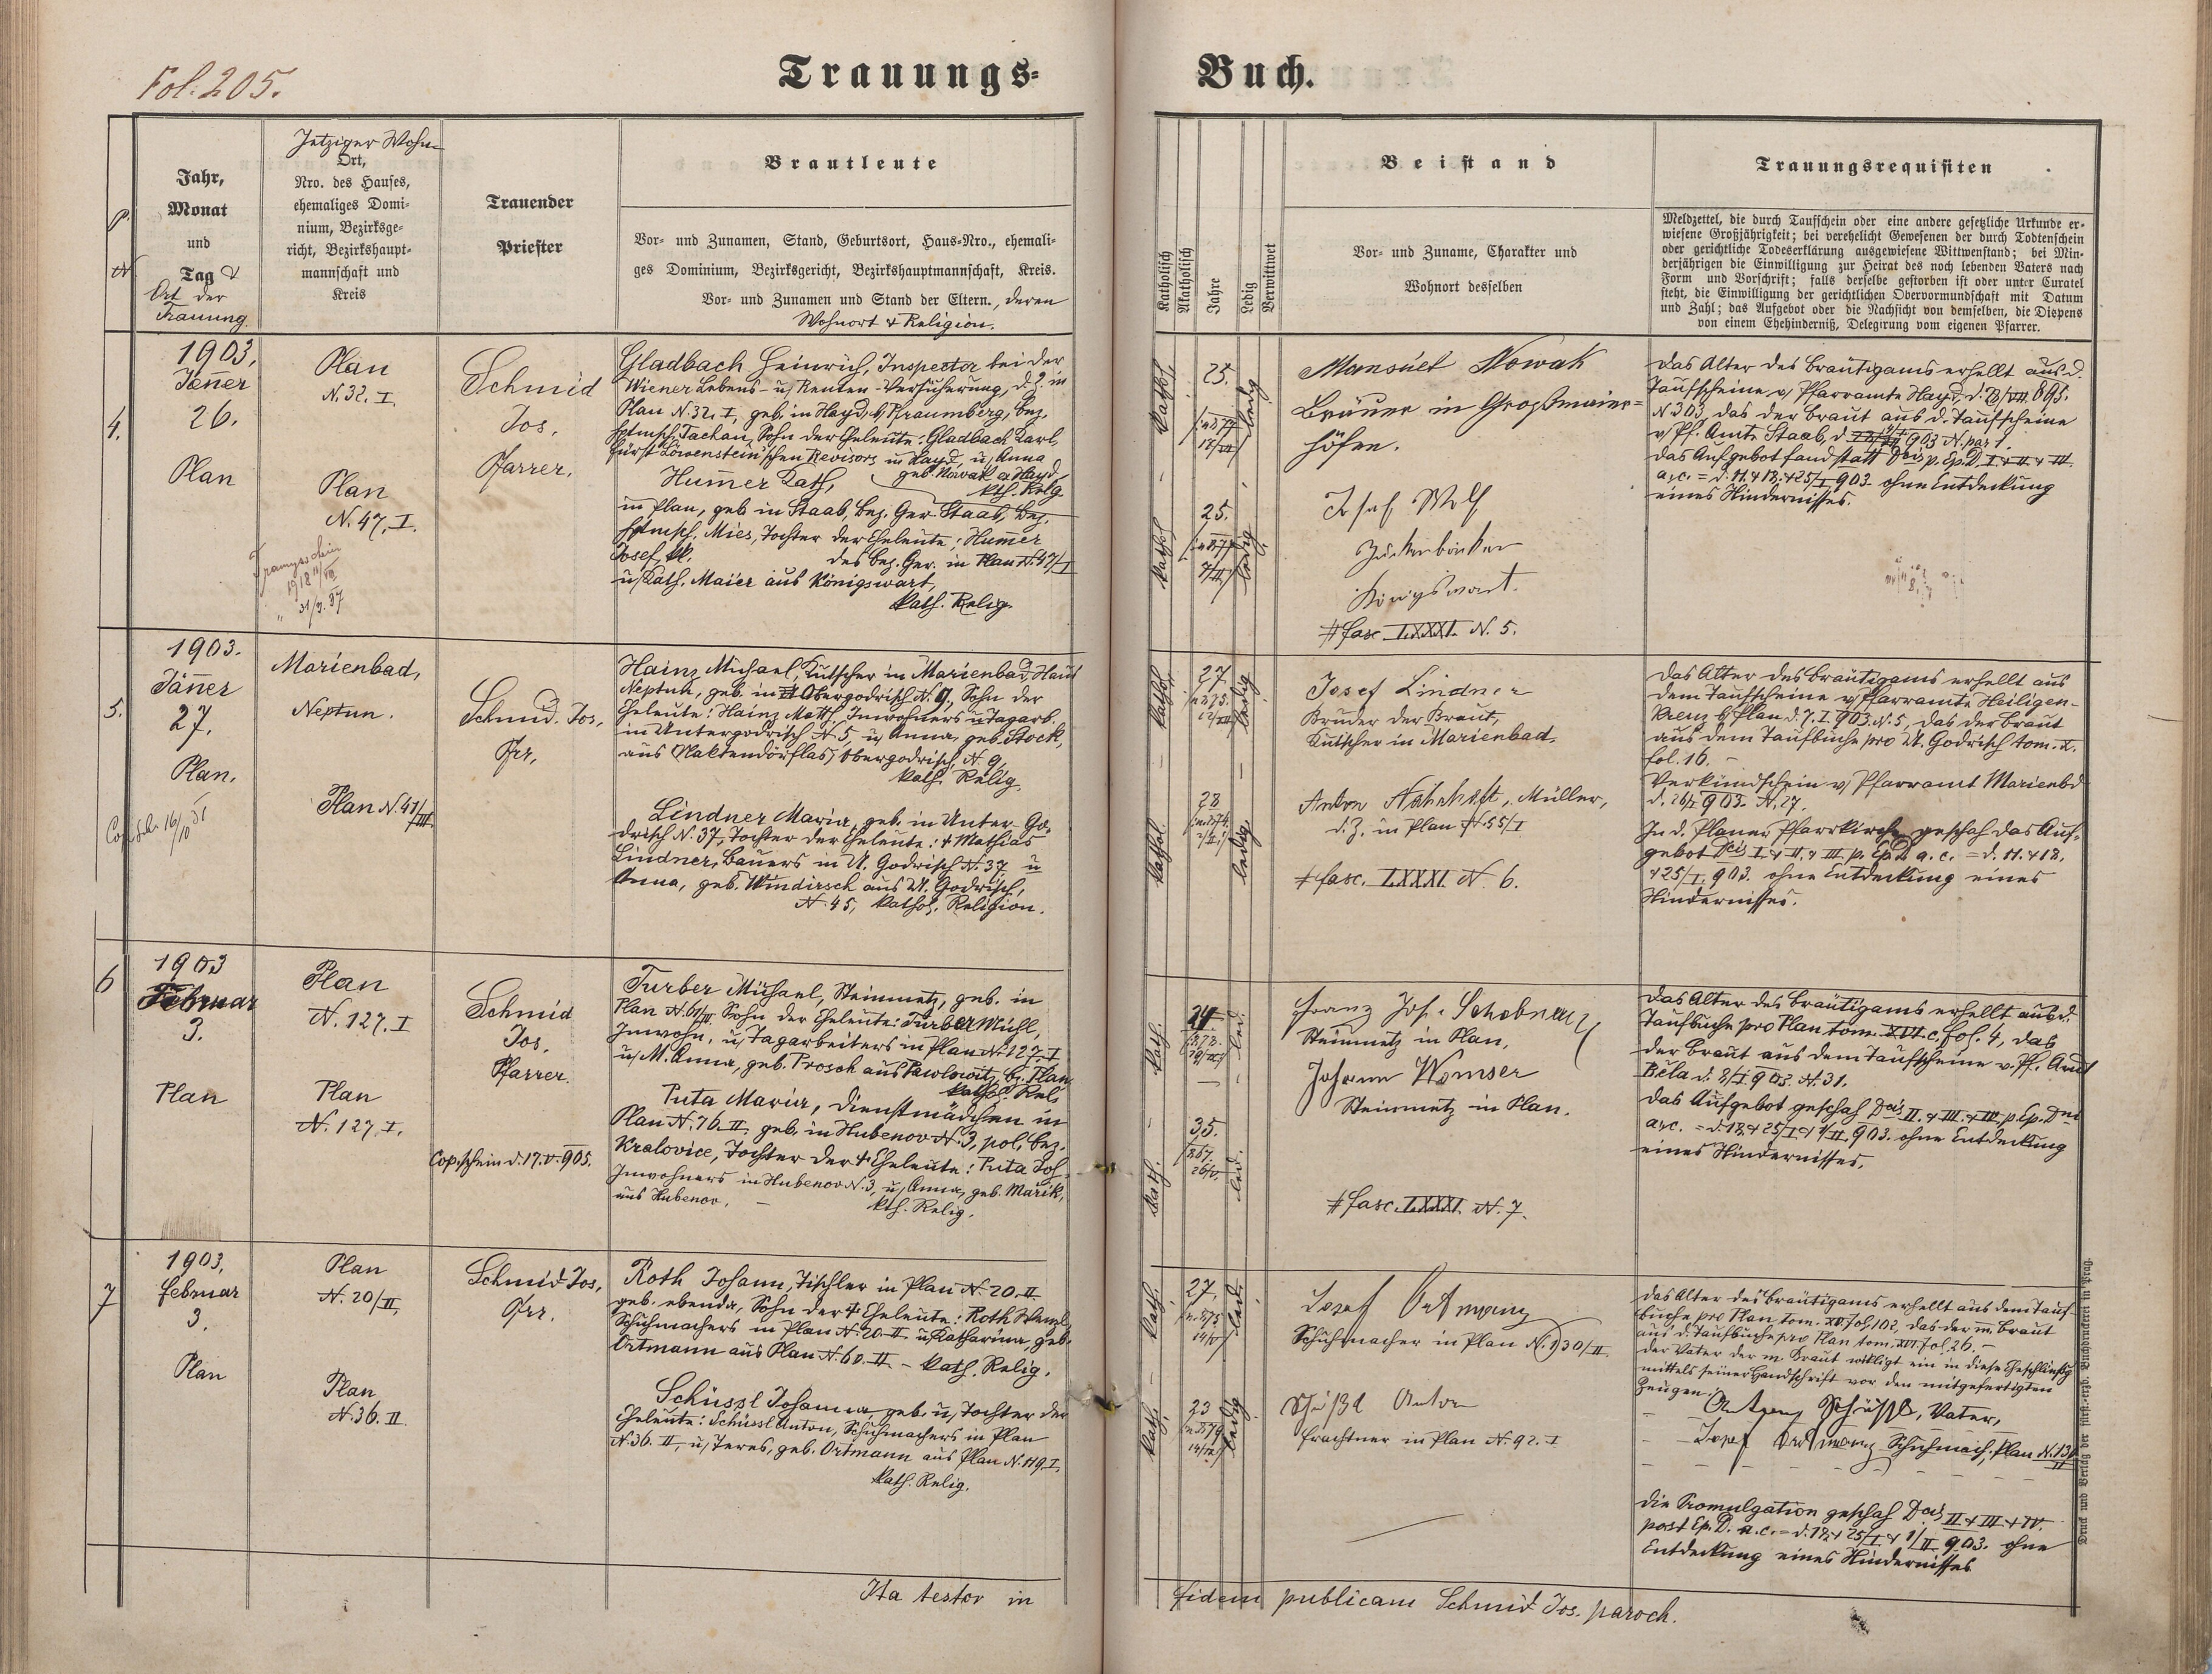 Fol. 205.
Trauungs-
Buch.
P.
N
Jahr,
Monat
und
Tag &
Ort der
Trauung.
Jetziger Wohn-
Ort,
Nro. des Hauses,
ehemaliges Domi-
nium, Bezirksge-
richt, Bezirkshaupt-
mannschaft und
Kreis
Trauender
Priester
Brautleute
Vor- und Zunamen, Stand, Geburtsort, Haus-Nro., ehemali-
ges Dominium, Bezirksgericht, Bezirkshauptmannschaft, Kreis.
Vor- und Zunamen und Stand der Eltern., deren
Wohnort & Religion.
Katholisch
Akatholisch
Jahre
Ledig
Verwittwet
Beistand
Vor- und Zuname, Charakter und
Wohnort desselben
Trauungsrequisiten
Meldzettel, die durch Taufschein oder eine andere gesetzliche Urkunde er-
wiesene Großjährigkeit; bei verehelicht Gewesenen der durch Todtenschein
oder gerichtliche Todeserklärung ausgewiesene Wittwenstand; bei Min-
derjährigen die Einwilligung zur Heirat des noch lebenden Vaters nach
Form und Vorschrift; falls derselbe gestorben ist oder unter Curatel
steht, die Einwilligung der gerichtlichen Obervormundschaft mit Datum
und Zahl; das Aufgebot oder die Nachsicht von demselben, die Dispens
von einem Ehehinderniß, Delegirung vom eigenen Pfarrer.
4.
1903.
Jänner
26.
Plan
Plan
N. 32. I.
Plan
N. 47, I.
1918
31/3. 37
Schmid
Jos.
Pfarrer.
Gladbach Heinrich, Inspector bei der
Wiener Lebens- u. Renten-Versicherung, d. Z. in
Plan N. 32. I, geb. in Hayd, b/ Kraumberg, Bez.
Hptmsch. Tachau, Sohn der Eheleute: Gladbach Karl,
Fürst Löwenstein'schen Revisors in Hayd, u. Anna
geb. Nowak a. Hayd,
kth. Relg.
Hum̄er Kath.
in Plan, geb. in Staab, Bez. Ger. Staab, Bez.
Hptmsch. Mies, Tochter der Eheleute: Hum̄er
Josef, des Bez. Ger. in Plan N. 47/I
u. Kath. Maier aus Königswart,
Kath. Relig.
Kathol.
25.
ledig
Kathol.
25.
ledig
Mansuet Nowak
Bräuer in Großmaier-
höfen.
Josef Wolf
Zuckerbäcker
Königswart.
# fasc. LXXXI. N. 5.
Das Alter des Bräutigams erhellt aus d.
Taufscheine v/ Pfarramte Hayd, d. 895.
N 303, das der Braut aus d. Taufscheine
v/ Pf. Amte Staab, d. 903 N. par 1.
Das Aufgebot fand statt Dcis p. Ep. D. I & II & III.
a. c. = d. 11. & 18. & 25/I 903. ohne Entdeckung
eines Hindernisses.
5.
1903.
Jänner
27.
Plan.
Cop. sch. 16/10 51
Marienbad,
Neptun.
Plan N. 47/III.
Schmid. Jos.
Pfr.
Hainz Michael, Kutscher in Marienbad, Haus
Neptun, geb. in Obergodrisch N. 9, Sohn der
Eheleute: Hainz Math. Inwohners u Tagarb.
in Untergodrisch N. 5 u. Anna, geb. Stock,
aus Naketendörflas, Obergodrisch, N. 9,
Kath. Relig.
Lindner Maria, geb. in Unter-Go-
drisch N. 37, Tochter der Eheleute: † Mathias
Lindner, Bauers in U. Godrisch N. 37, u
Anna, geb. Windirsch aus U. Godrisch,
N. 45, kathol. Religion.
Kathol.
27.
ledig
Kathol.
28
ledig
Josef Lindner
Bruder der Braut,
Kutscher in Marienbad.
Anton Müller,
d. Z. in Plan N. 55/I
# fasc. LXXXI. N. 6.
Das Alter des Bräutigams erhellt aus
dem Taufscheine v/ Pfarramte Heiligen-
kreuz b/ Plan d. 7. I. 903. N. 5, das der Braut
aus dem Taufbuche pro U. Godrisch tom. X.
fol. 16. –
Verkündschein v/ Pfarramt Marienbd
d. 26/I 903. N. 27.
In d. Planer Pfarrkirche geschah das Auf-
gebot Dcis I. & II. & III. p. Ep. D. a. c. = d. 11. & 18.
& 25/I. 903. ohne Entdeckung eines
Hindernisses.
6
1903
Februar
3.
Plan
Plan
N. 127. I
Plan
N. 127. I.
Schmid
Jos.
Pfarrer.
Cop. schein d. 17. V. 905.
Turber Michael, Steinmetz, geb. in
Plan N. 61/III. Sohn der Eheleute: Turber Michl,
Inwohn. u. Tagarbeiters in Plan N. 127. I
u. M. Anna, geb. Prosch aus Pawlowitz, bz. Plan
Kathol. Rel.
Puta Maria, Dienstmädchen in
Plan N. 76. II. geb. in Hubenov N. 3, pol. Bez.
Kralovice, Tochter der † Eheleute: Puta Joh.
Inwohners in Hubenov N. 3, u. Anna, geb. Mařik,
aus Hubenov. – kth. Relig.
Kath.
led.
Kath.
35.
1867.
led.
Franz Jos. Schobnerz
Steinmetz in Plan,
Johann Womser
Steinmetz in Plan.
# fasc. LXXXI. N. 7.
Das Alter des Bräutigams erhellt aus d.
Taufbuche pro Plan tom. XVI. c. fol. 4, das
der Braut aus dem Taufscheine v. Pf. Amt
Běla d. 8/I 903. N. 31.
Das Aufgebot geschah Dcis II. & III. & IV. p. Ep. Dni
a. c. = d. 18. & 25/I & 1/II. 903. ohne Entdeckung
eines Hindernisses.
7
1903.
Februar
3.
Plan
Plan
N. 20/II.
Plan
N. 36. II.
Schmid Jos.
Pfr.
Roth Johann, Tischler in Plan N. 20. II
geb. ebenda, Sohn der † Eheleute: Roth Wenzl,
Schuhmachers in Plan N. 20. II. u. Katharina, geb.
Ortmann aus Plan N. 60. II. – Kath. Relig.
Schüssl Johanna, geb. u. Tochter der
Eheleute: Schüssl Anton, Schuhmachers in Plan
N. 36. II, u. Teres, geb. Ortmann aus Plan N. 119. I.
Kath. Relig.
Kath.
27.
led.
Kath.
23
ledig
Josef Ortmann
Schuhmacher in Plan N. 130/II.
Anton
Frachtner in Plan N. 92. I
Das Alter des Bräutigams erhellt aus dem Tauf-
buche pro Plan tom. XV. fol. 102, das der m. Braut
aus d. Taufbuche pro Plan tom. XVI. fol. 26. –
Der Vater der m. Braut willigt ein in diese Eheschließg
mittels seiner Handschrift vor den mitgefertigten
Zeugen:
– Anton Schüssl, Vater,
– Josef Ortmann Schuhmach. Plan N. 130/II
Die Promulgation geschah Dcis II & III & IV.
post Ep. D. a. c. = d. 18. & 25/I & 1/II 903. ohne
Entdeckung eines Hindernisses
Ita testor in
fidem publicam Schmid Jos. paroch.
Druck und Verlag der fürst.-erzb. Buchdruckerei in Prag.